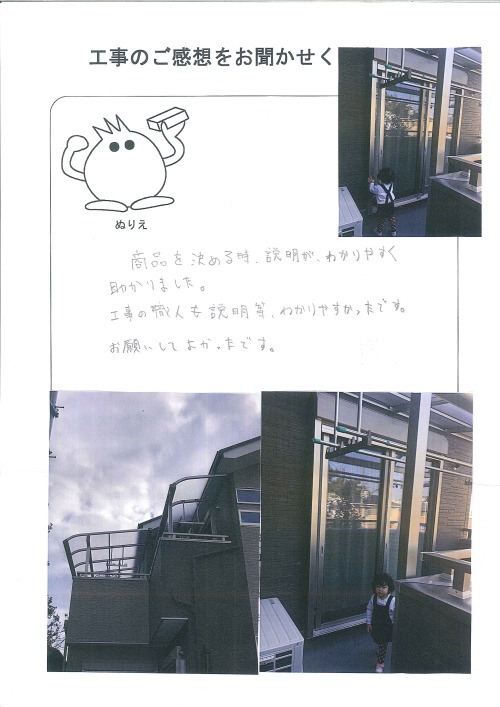 工事のご感想をお聞かせく
ぬりえ
商品を決める時、説明が、わかりやすく
助かりました。
工事の職人も説明等、わかりやすかったです。
お願いしてよかったです。